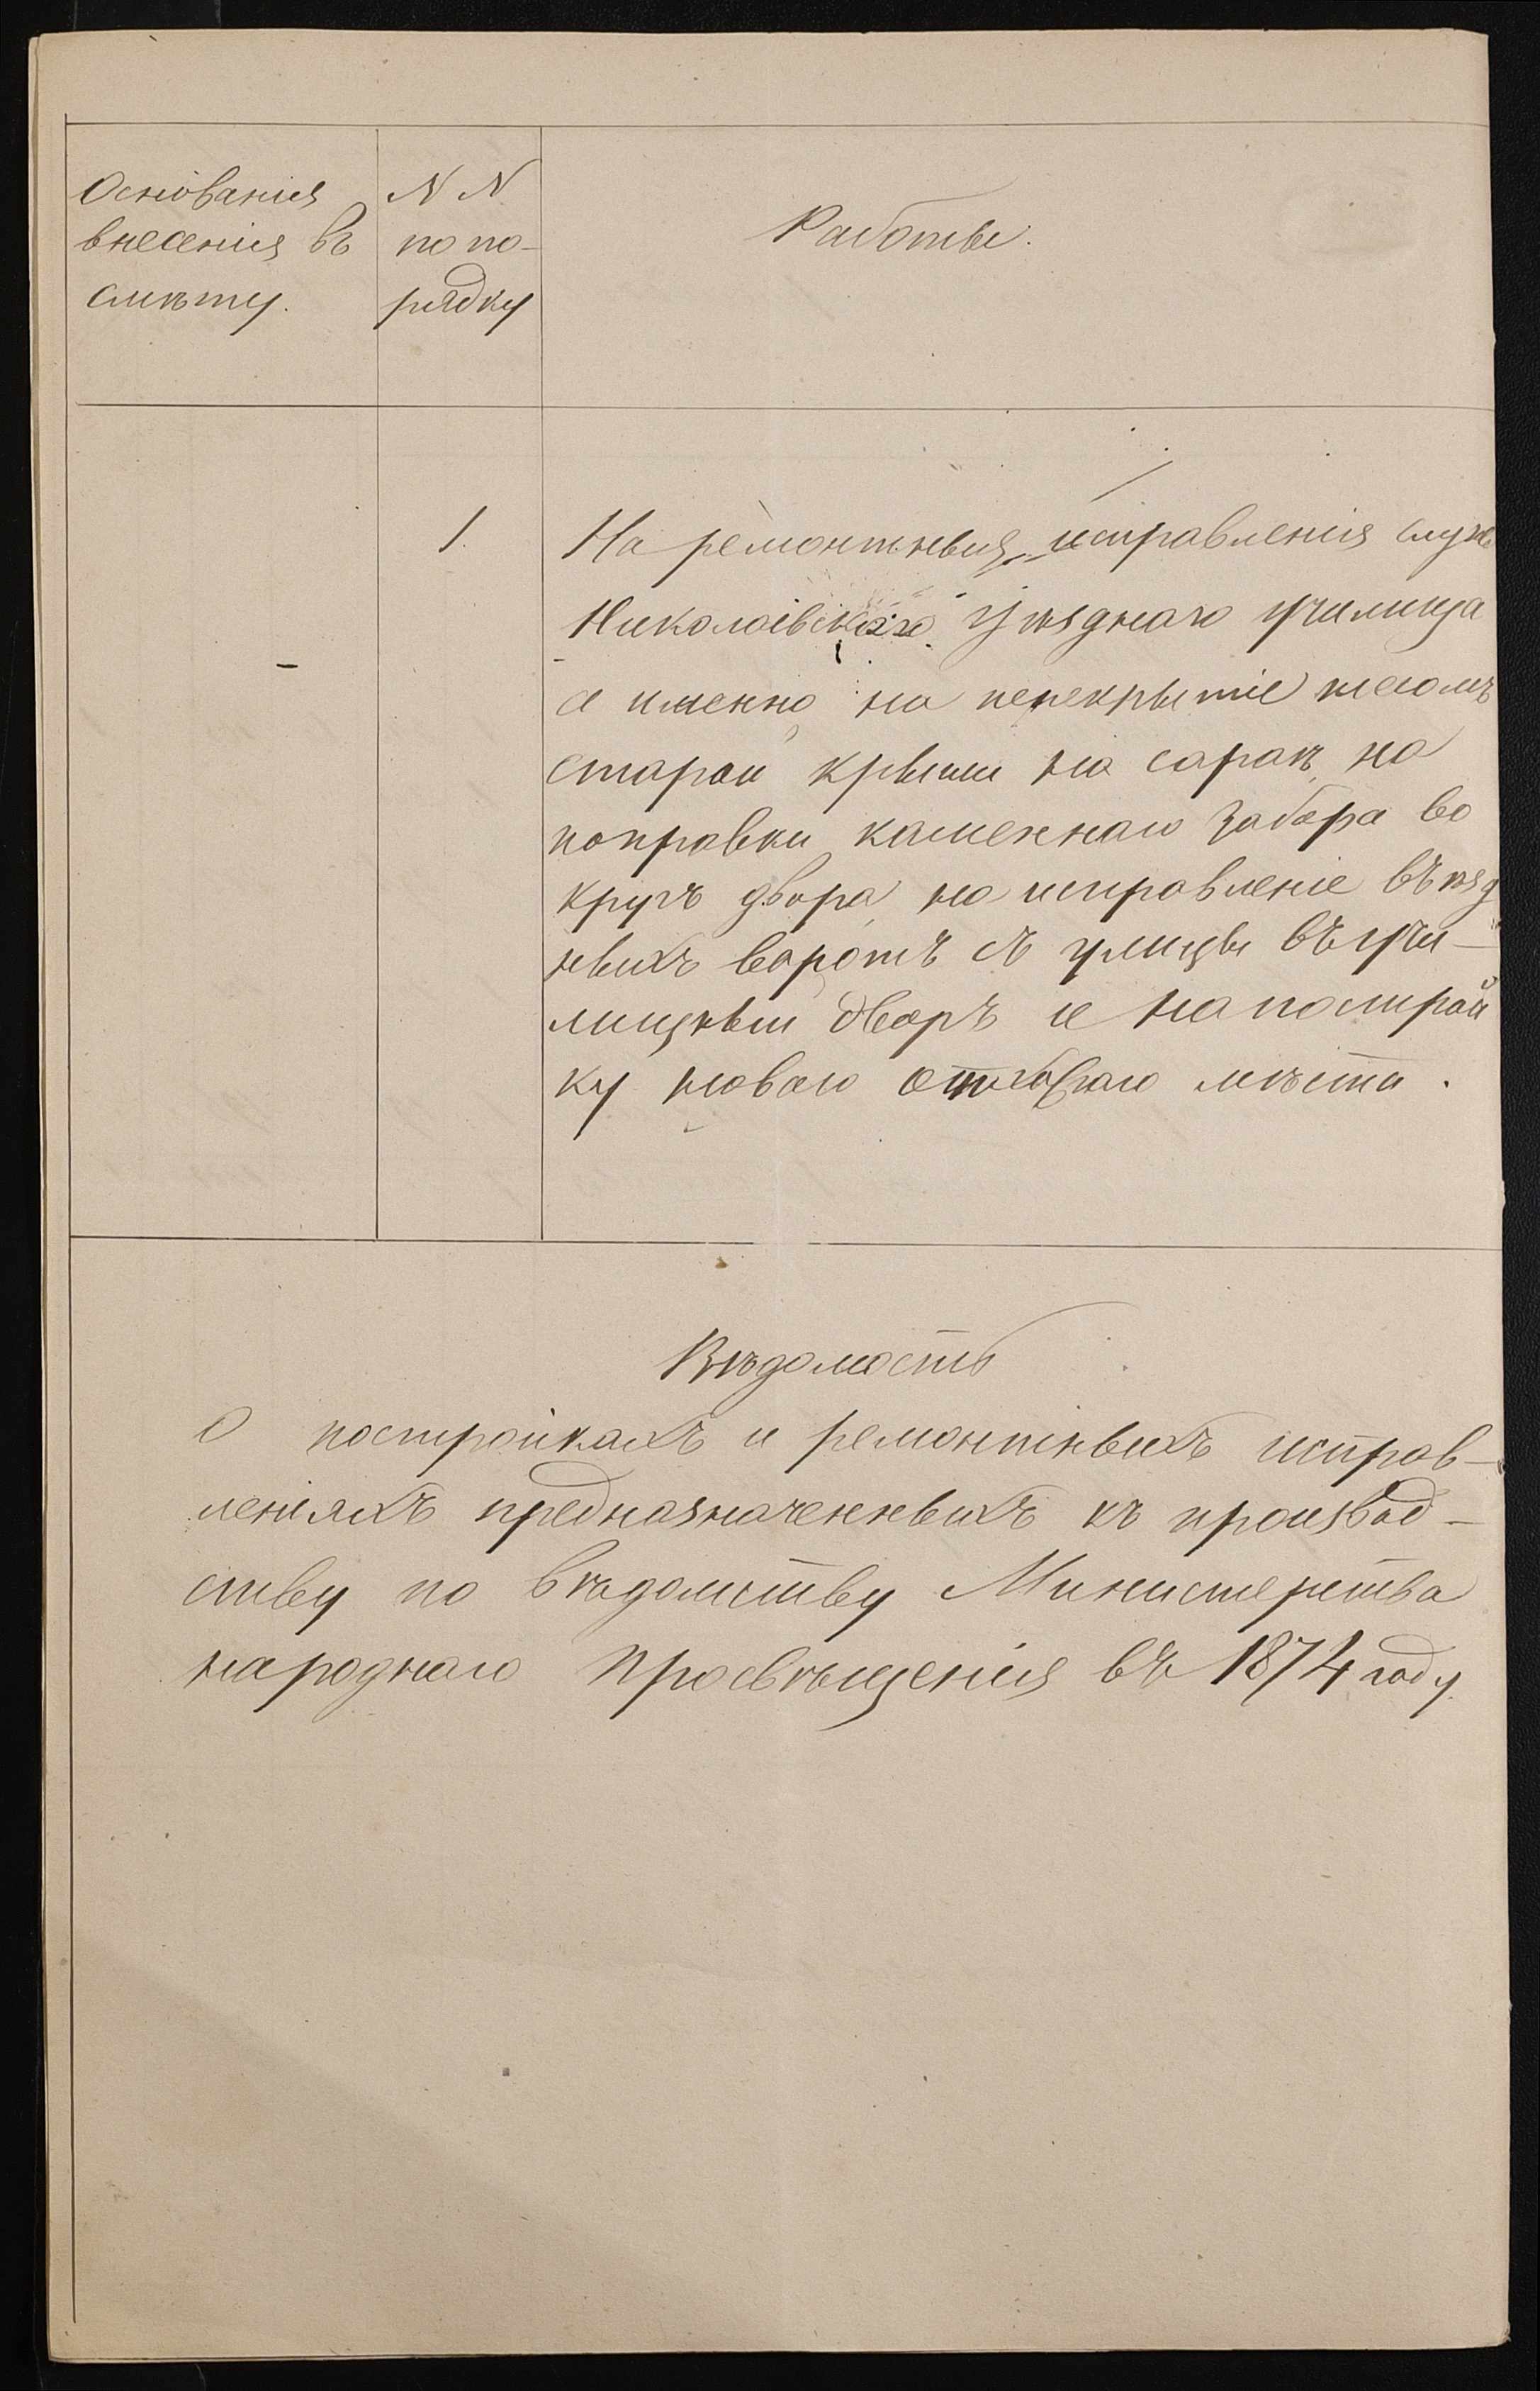 Основанія
внесенія въ
смѣту.
N N
по по-
рядку
Работы.
1.
На ремонтныя исправленія служ
Николаевскаго Уѣзднаго училища
а именно на перекрытіе тесомъ
старой крыши на сараѣ, на
поправки каменнаго забора во
кругъ двора, на исправленіе въѣзд
ныхъ воротъ съ улицы въ учи-
лищный дворъ и на построй
ку новаго отхожаго мѣста.
Вѣдомость
О постройкахъ и ремонтныхъ исправ-
леніяхъ предназначенныхъ къ производ-
ству по вѣдомству Министерства
народнаго просвѣщенія въ 1874 году.